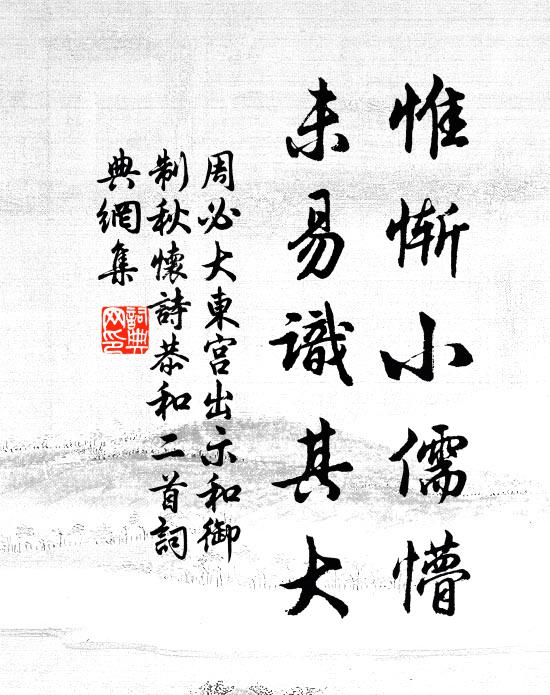 惟慚小儒懵
未易識其大
周必大東宮出示和御
制秋懷詩恭和二首詞
典網集
詞典
网印